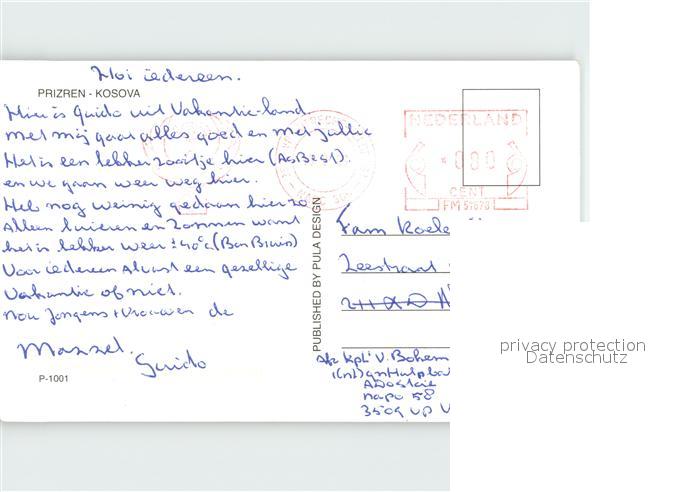 Hoi iedereen.
PRIZREN - KOSOVA
Hier is Guido uit Vakantie land
met mij gaat alles goed en met jullie
Het is een lekker zooitje hier (AsBest).
en we gaan weer weg hier.
Heb nog weinig gedaan hier zo
Alleen luieren en zonnen want
het is lekker weer ± 40°C (Bon Bruin)
Voor iedereen Alvast een gezellige
Vakantie of niet.
nou Jongens + Vrouwen de
Mazzel.
Guido
P-1001
PUBLISHED BY PULA DESIGN
NEDERLAND
000
CENT
FM 57678
Fam Koele
Zeestraat
Afz Kpl V. Bohem
ADostaie
Napo 58
3509 VP V
privacy protection
Datenschutz